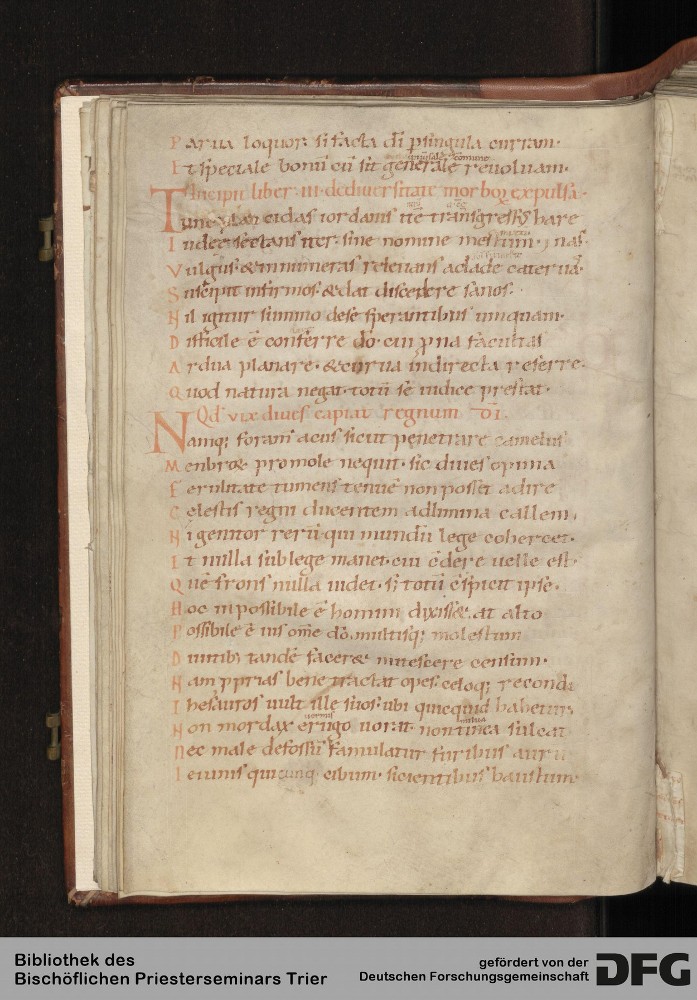 Parua loquor si facta di p singula curram·
Et speciale bonū cū sit generale reuoluam·
Incipit liber ·iii· de diuersitate morboꝝ expulsa·
Tunc
iordanis
Iudee sectans iter· sine nomine
Vulgus & innumeras releuans a clade cateruas·
Suscipit infirmos· & dat discedere sanos·
Nil igitur summo de se sperantibus umquam·
Difficile ē conferre dō· cui p̄na facultas
Ardua planare· & curua in directa referre·
Quod natura negat· totū se iudice prestat·
Qđ vix diues capiat regnum dī·
Namq; foramˉ acus sicut penetrare camelus
Menbroꝝ pro mole nequit· sic diues opima
Fertilitate tumens tenuē non posset adire
Celestis regni ducentem ad limina callem·
Ni genitor rerū· qui mundū lege cohercet·
Et nulla sub lege manet· cui cedere uelle est·
Quē frons nulla uidet· s; totū cspicit ipse·
Hoc inpossibile ē homini dixiss&· at alto
Possibile ē ius omē dō· multisq; molestum
Diuitib; tandē facer& mitescere censum·
Nam pprias bene tractat opes· celoq; recondi
Thesauros uult ille suos· ubi quicquid habetur
uermis
Non mordax erugo uorat· non tinea sulcat
Nec male defossū famulatur furibus aurū
Ieiunis quicunq· cibum· sicientibus haustum
Bibliothek des
Bischöflichen Priesterseminars Trier
gefördert von der
Deutschen Forschungsgemeinschaft
DFG